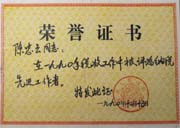 荣誉证书
陈忠云同志：
在一九九〇年税收工作中被评
先进工作者。
特发此证
一九九〇年